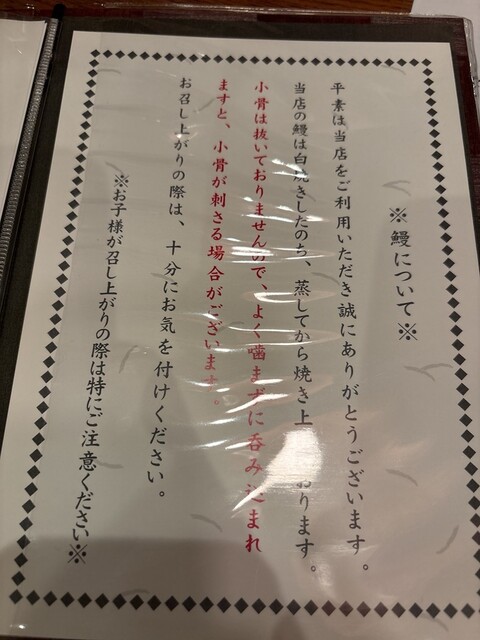 ※鰻について※
平素は当店をご利用いただき誠にありがとうございます。
当店の鰻は白焼きしたのち、蒸してから焼き上 おります。
小骨は抜いておりませんので、よく噛まずに呑み込まれ
ますと、小骨が刺さる場合がございます。
お召し上がりの際は、十分にお気を付けください。
※お子様が召し上がりの際は特にご注意ください※